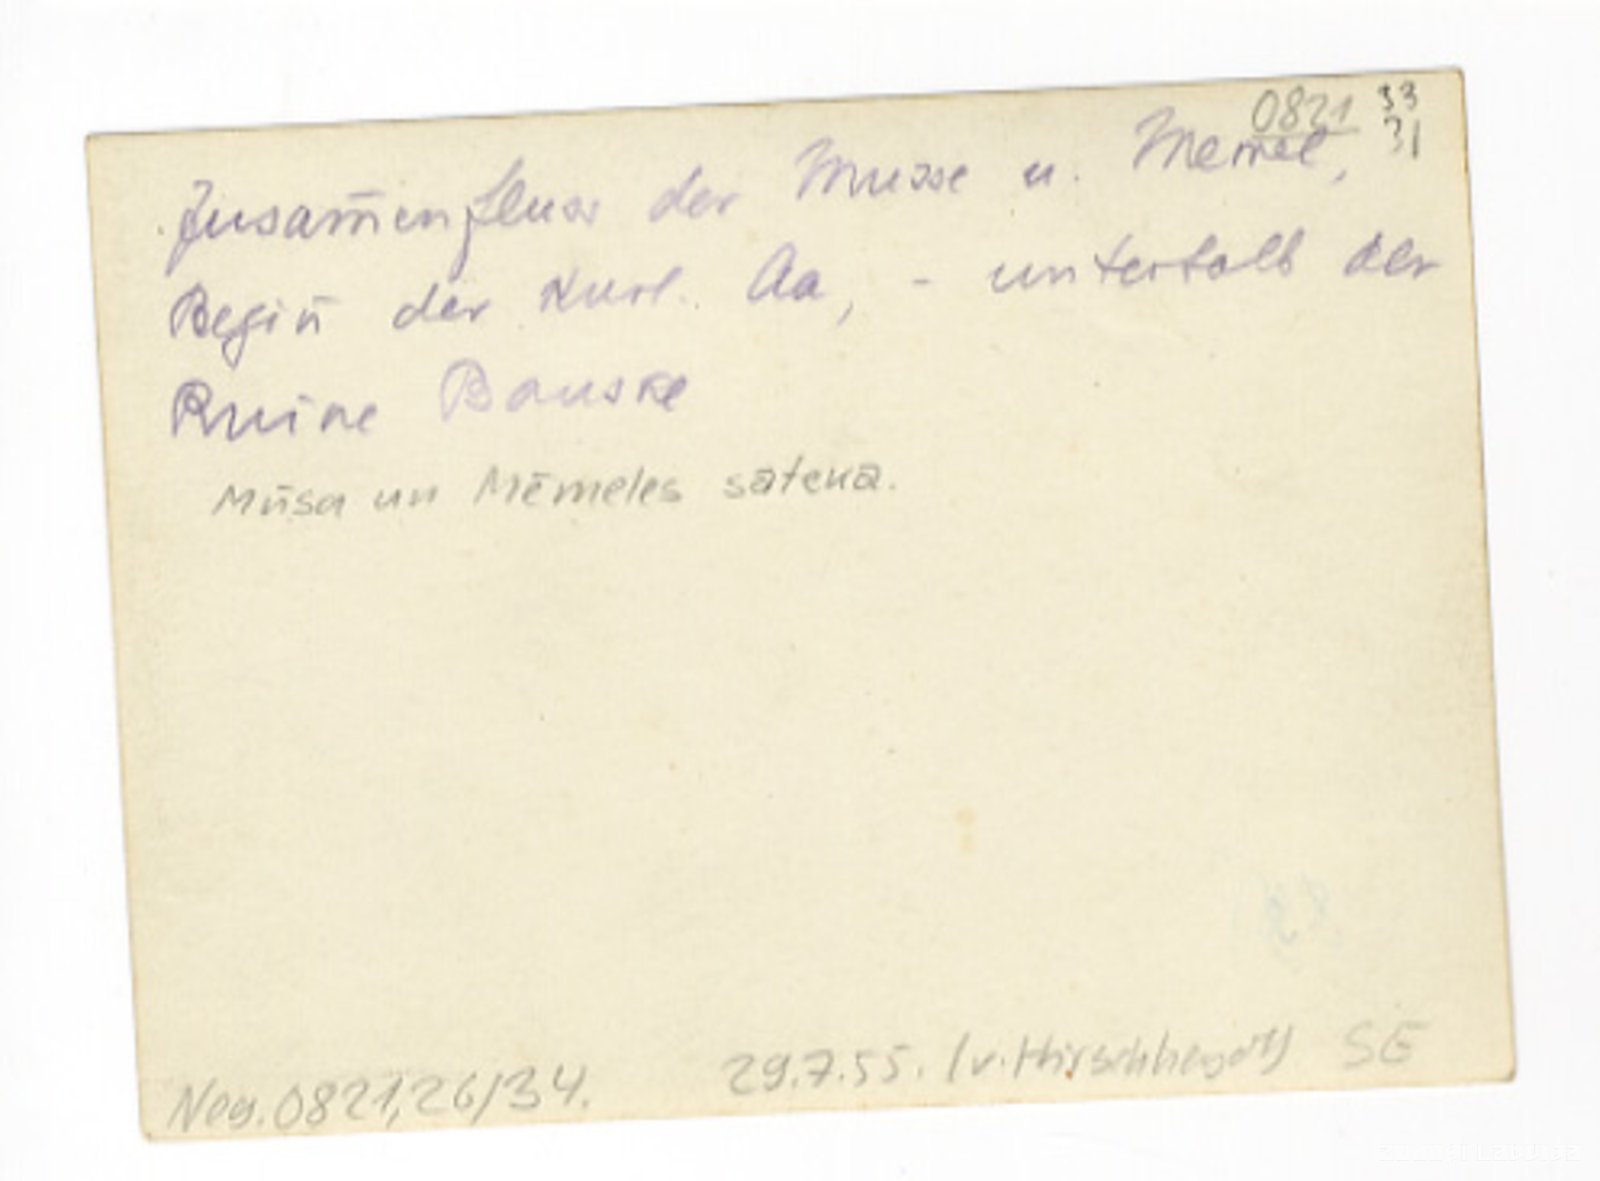 0821 33
31
Zusam̄enfluss der Musse u. Memel,
Begin̄ der Kurl. Aa, - unterhalb der
Ruine Bauske
Mūsa un Mēmeles sateka.
Neg. 0821,26/34. 29.7.55. (v. SE